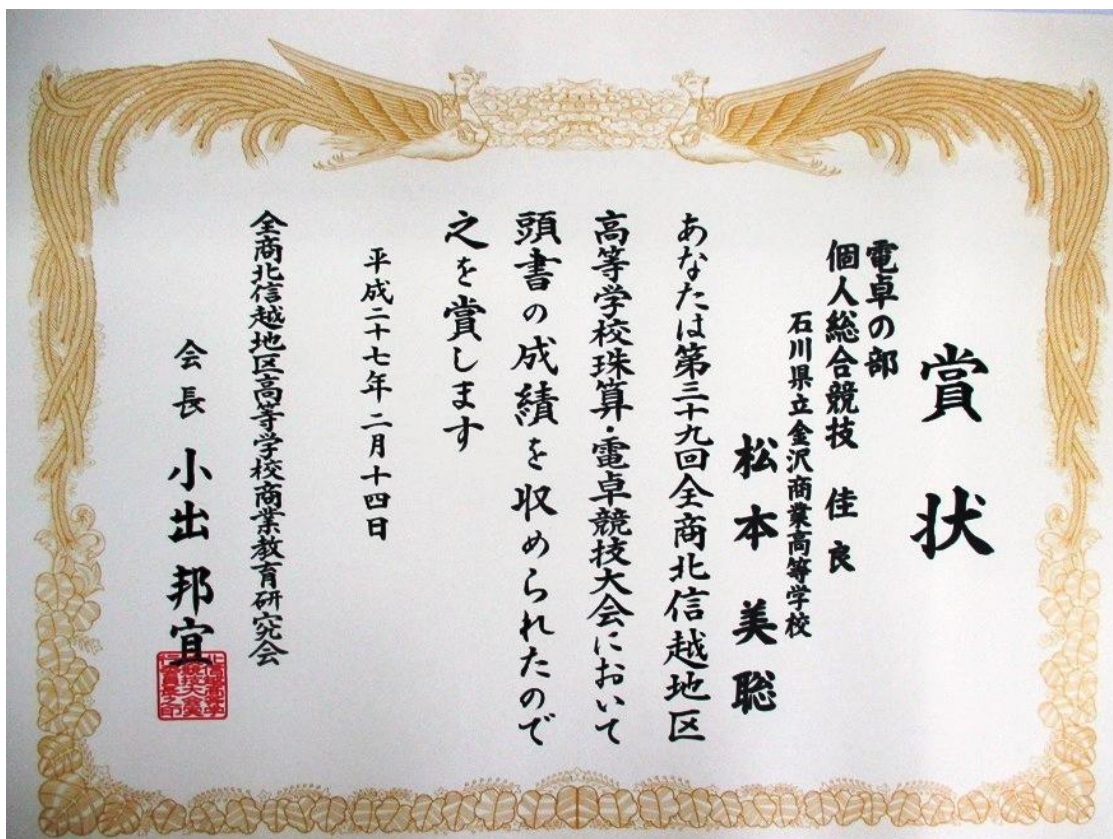 賞状
電卓の部
個人総合競技 佳良
石川県立金沢商業高等学校
松本美聡
あなたは第三十九回全商北信越地区
高等学校珠算・電卓競技大会において
頭書の成績を収められたので
之を賞します
平成二十七年二月十四日
全商北信越地区高等学校商業教育研究会
会長 小出邦宜